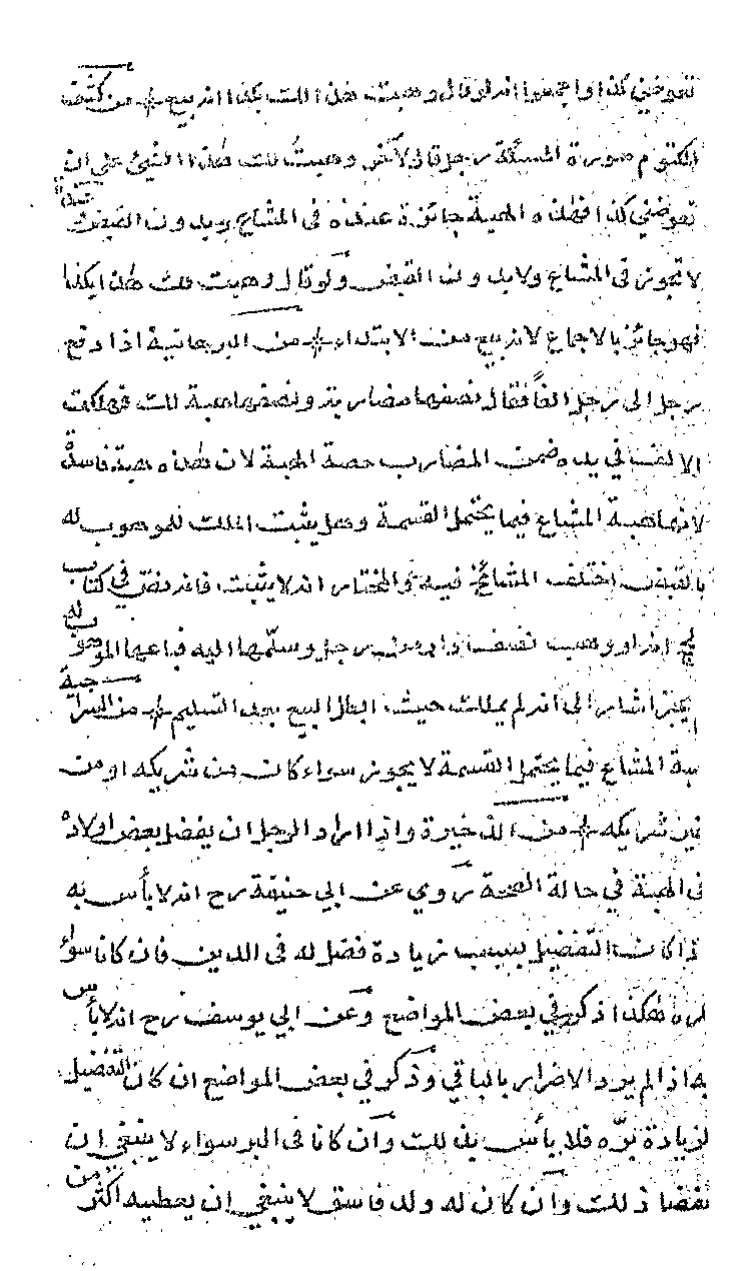 تعوضني كذا واجمعوا انه لو قال وهبت هذا لك بكذا انه بيع من كشف
المكتوم صورة المسئلة رجل قال لآخر وهبت لك هذا الشئ على ان
تعوضني كذا فهذه الهبة جائزة عنده في المشاع وبدون القبض
لا تجوز في المشاع ولا بدون القبض ولو قال وهبت لك هذا بكذا
فهو جائز بالاجماع لانه بيع من الابتداء من البرهانية اذا دفع
رجل الى رجل الفاً فقال نصفها مضاربة ونصفها هبة لك فهلكت
الالف في يده ضمن المضارب حصة الهبة لان هذه هبة فاسدة
لانها هبة المشاع فيما يحتمل القسمة وهل يثبت الملك للموهوب له
بالقبض اختلف المشائخ فيه والمختار انه لا يثبت فانه نص في كتاب
انه لو وهب نصف دار من رجل وسلّمها اليه فباعها الموهوب له
يجز اشار الى انه لم يملك حيث ابطل البيع بعد التسليم من السراجية
هبة المشاع فيما يحتمل القسمة لا يجوز سواء كان من شريكه او من
غير شريكه من الذخيرة واذا اراد الرجل ان يفضل بعض اولاده
في الهبة في حالة الصحة روي عن ابي حنيفة رح انه لا بأس به
اذا كان التفضيل لسبب زيادة فضل له في الدين فان كانا سواء
كره هكذا ذكر في بعض المواضع وعن ابي يوسف رح انه لا بأس
به اذا لم يرد الاضرار بالباقي وذكر في بعض المواضع ان كان التفضيل
لزيادة برّه فلا بأس بذلك وان كانا في البر سواء لا ينبغي ان
يفضل ذلك وان كان له ولد فاسق لا ينبغي ان يعطيه اكثر من